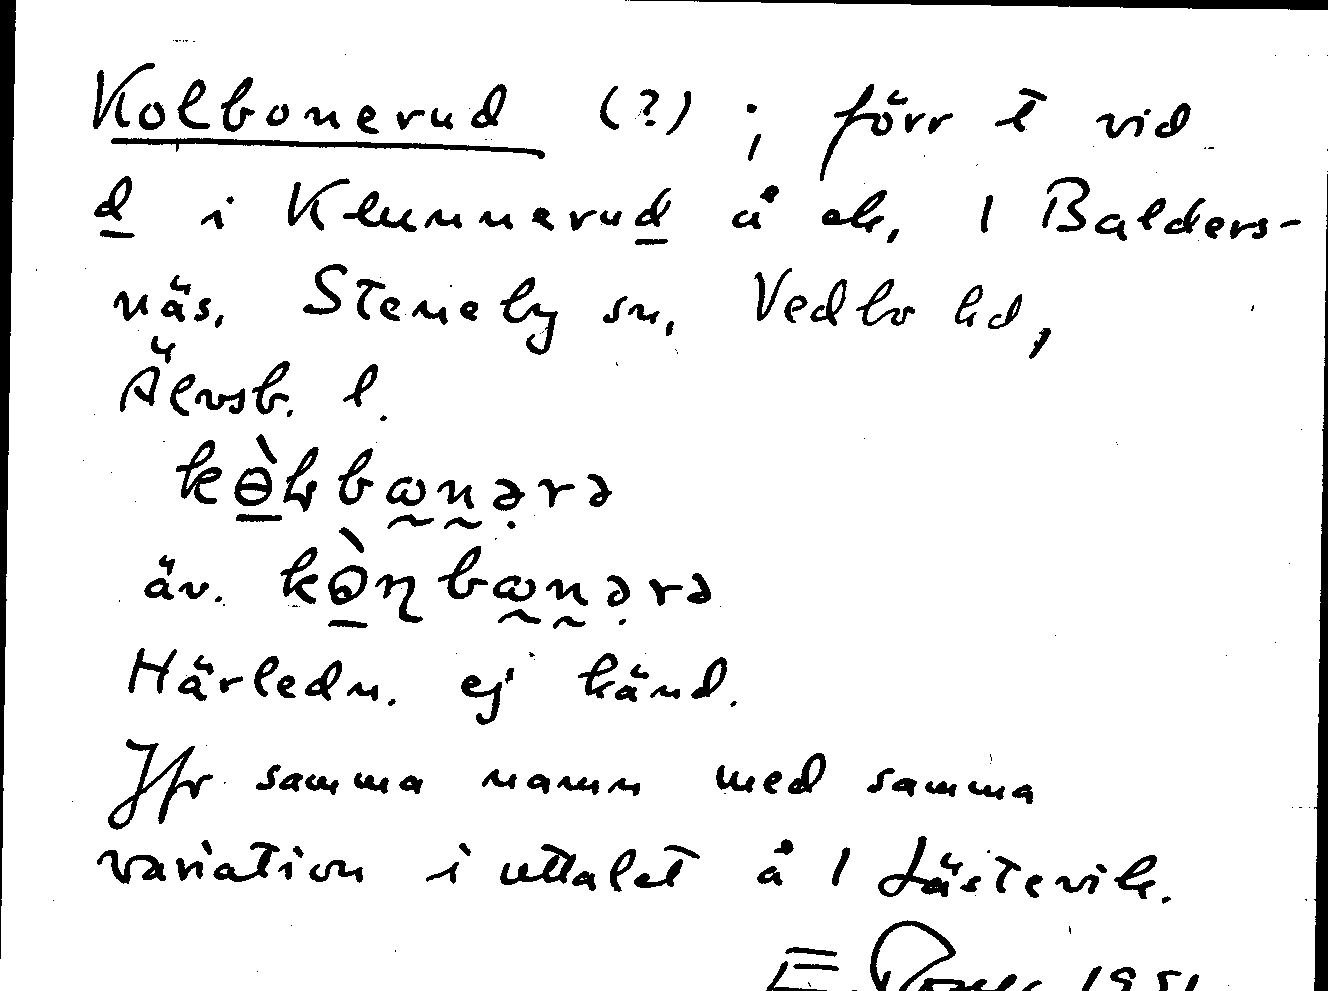 Kolbonerud (?) ; förr t vid
d i Klunnerud å ek. 1 Balders-
näs, Steneby sn, Vedbo hd,
Älvsb. l.
äv.
Härledn. ej känd.
Jfr samma namn med samma
variation i uttalet å 1 Låstevik.
E. 1951